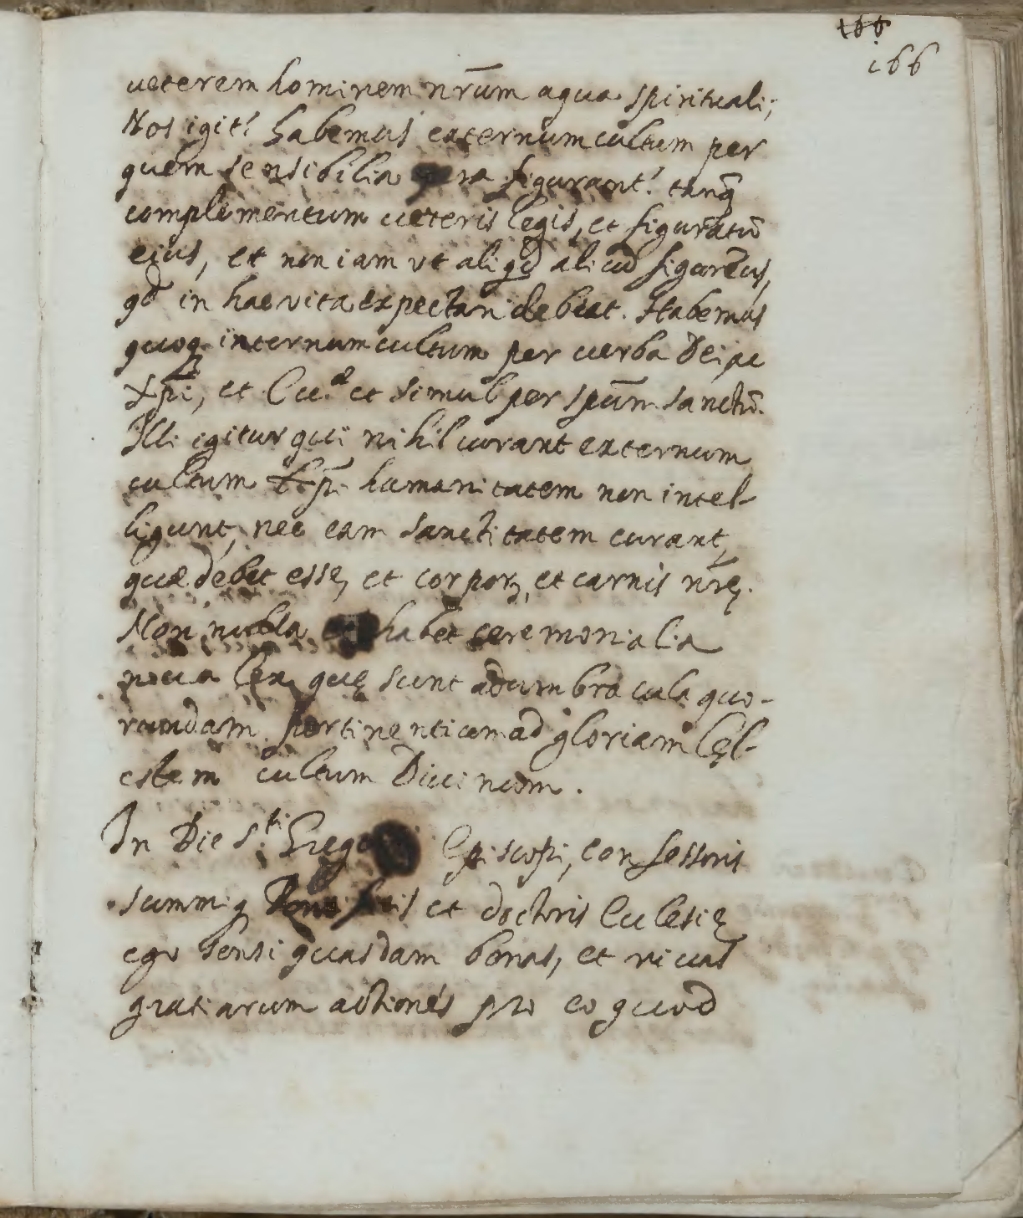 166
166
ueterem hominem nr̃um aqua spirituali;
Nos igit' habemus externum cultum per
quem sensibilia figurant' tanq̃
complementum ueteris legis, et figuratũ
eius, et non iam vt aliqd̃ alicui figurãtius,
qd̃ in hac vita expectari debeat. Habemus
quoq; internum cultum per uerba Dei, ac
Xp̃i, et et simul per spũm sanctũ.
Illi igitur qui nihil curant externum
cultum Xp̃i humanitatem non intel-
ligunt, nec eam sanctitatem curant,
quæ debet esse, et corporis, et carnis nr̃ę.
Non nulla habet ceremonialia
noua lex, quę sunt adumbracula quo-
rundam pertinentium ad gloriam Cęl-
estem cultum Diuinum.
In Die S.ti Episcopi, confessoris
summiq; et doctoris Ecclesię
ego sensi quasdam bonas, et viuas
gratiarum actiones pro eo quod